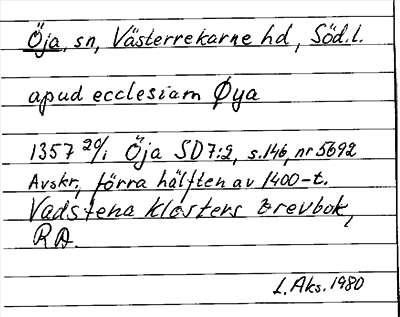 Öja, sn, Västerrekarne hd, Söd.l.
apud ecclesiam Øya
1357 20/1 Öja SD 7:2, s.146, nr 5692
Avskr., förra hälften av 1400-t.
Vadstena klosters brevbok,
RA.
L. Aks. 1980